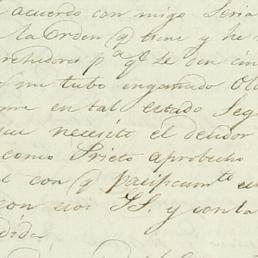 acuerdo con migo seria
la orden q tiene y he
rehedores pa qe le den cin
mi tubo engañado
me en tal estado seg
necesite el deudor
como Prieto aprobecho
con q
con sus SS. y con la
dida